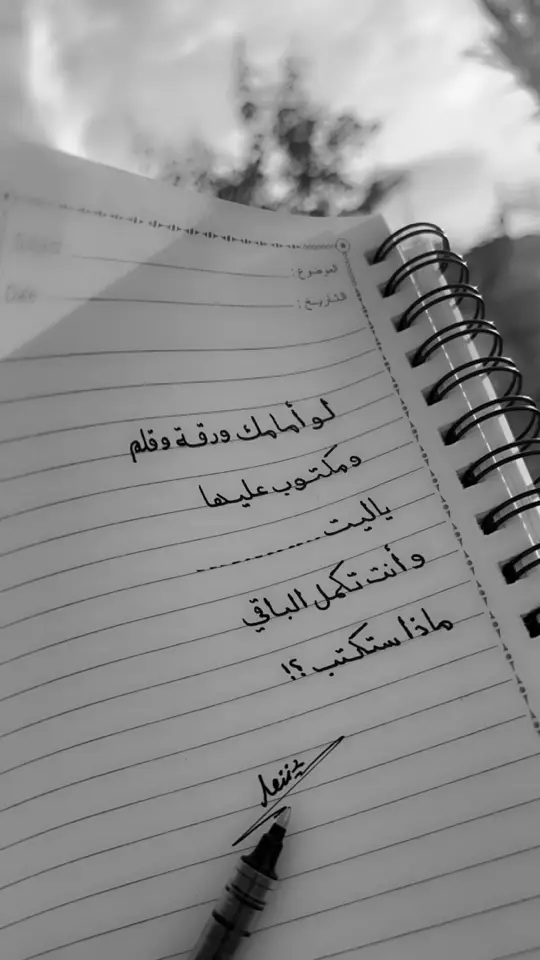 Subject
الموضوع:
Date
التاريخ:
لو أمامك ورقة وقلم
ومكتوب عليها
ياليت............
وأنت تكمل الباقي
ماذا ستكتب ؟!